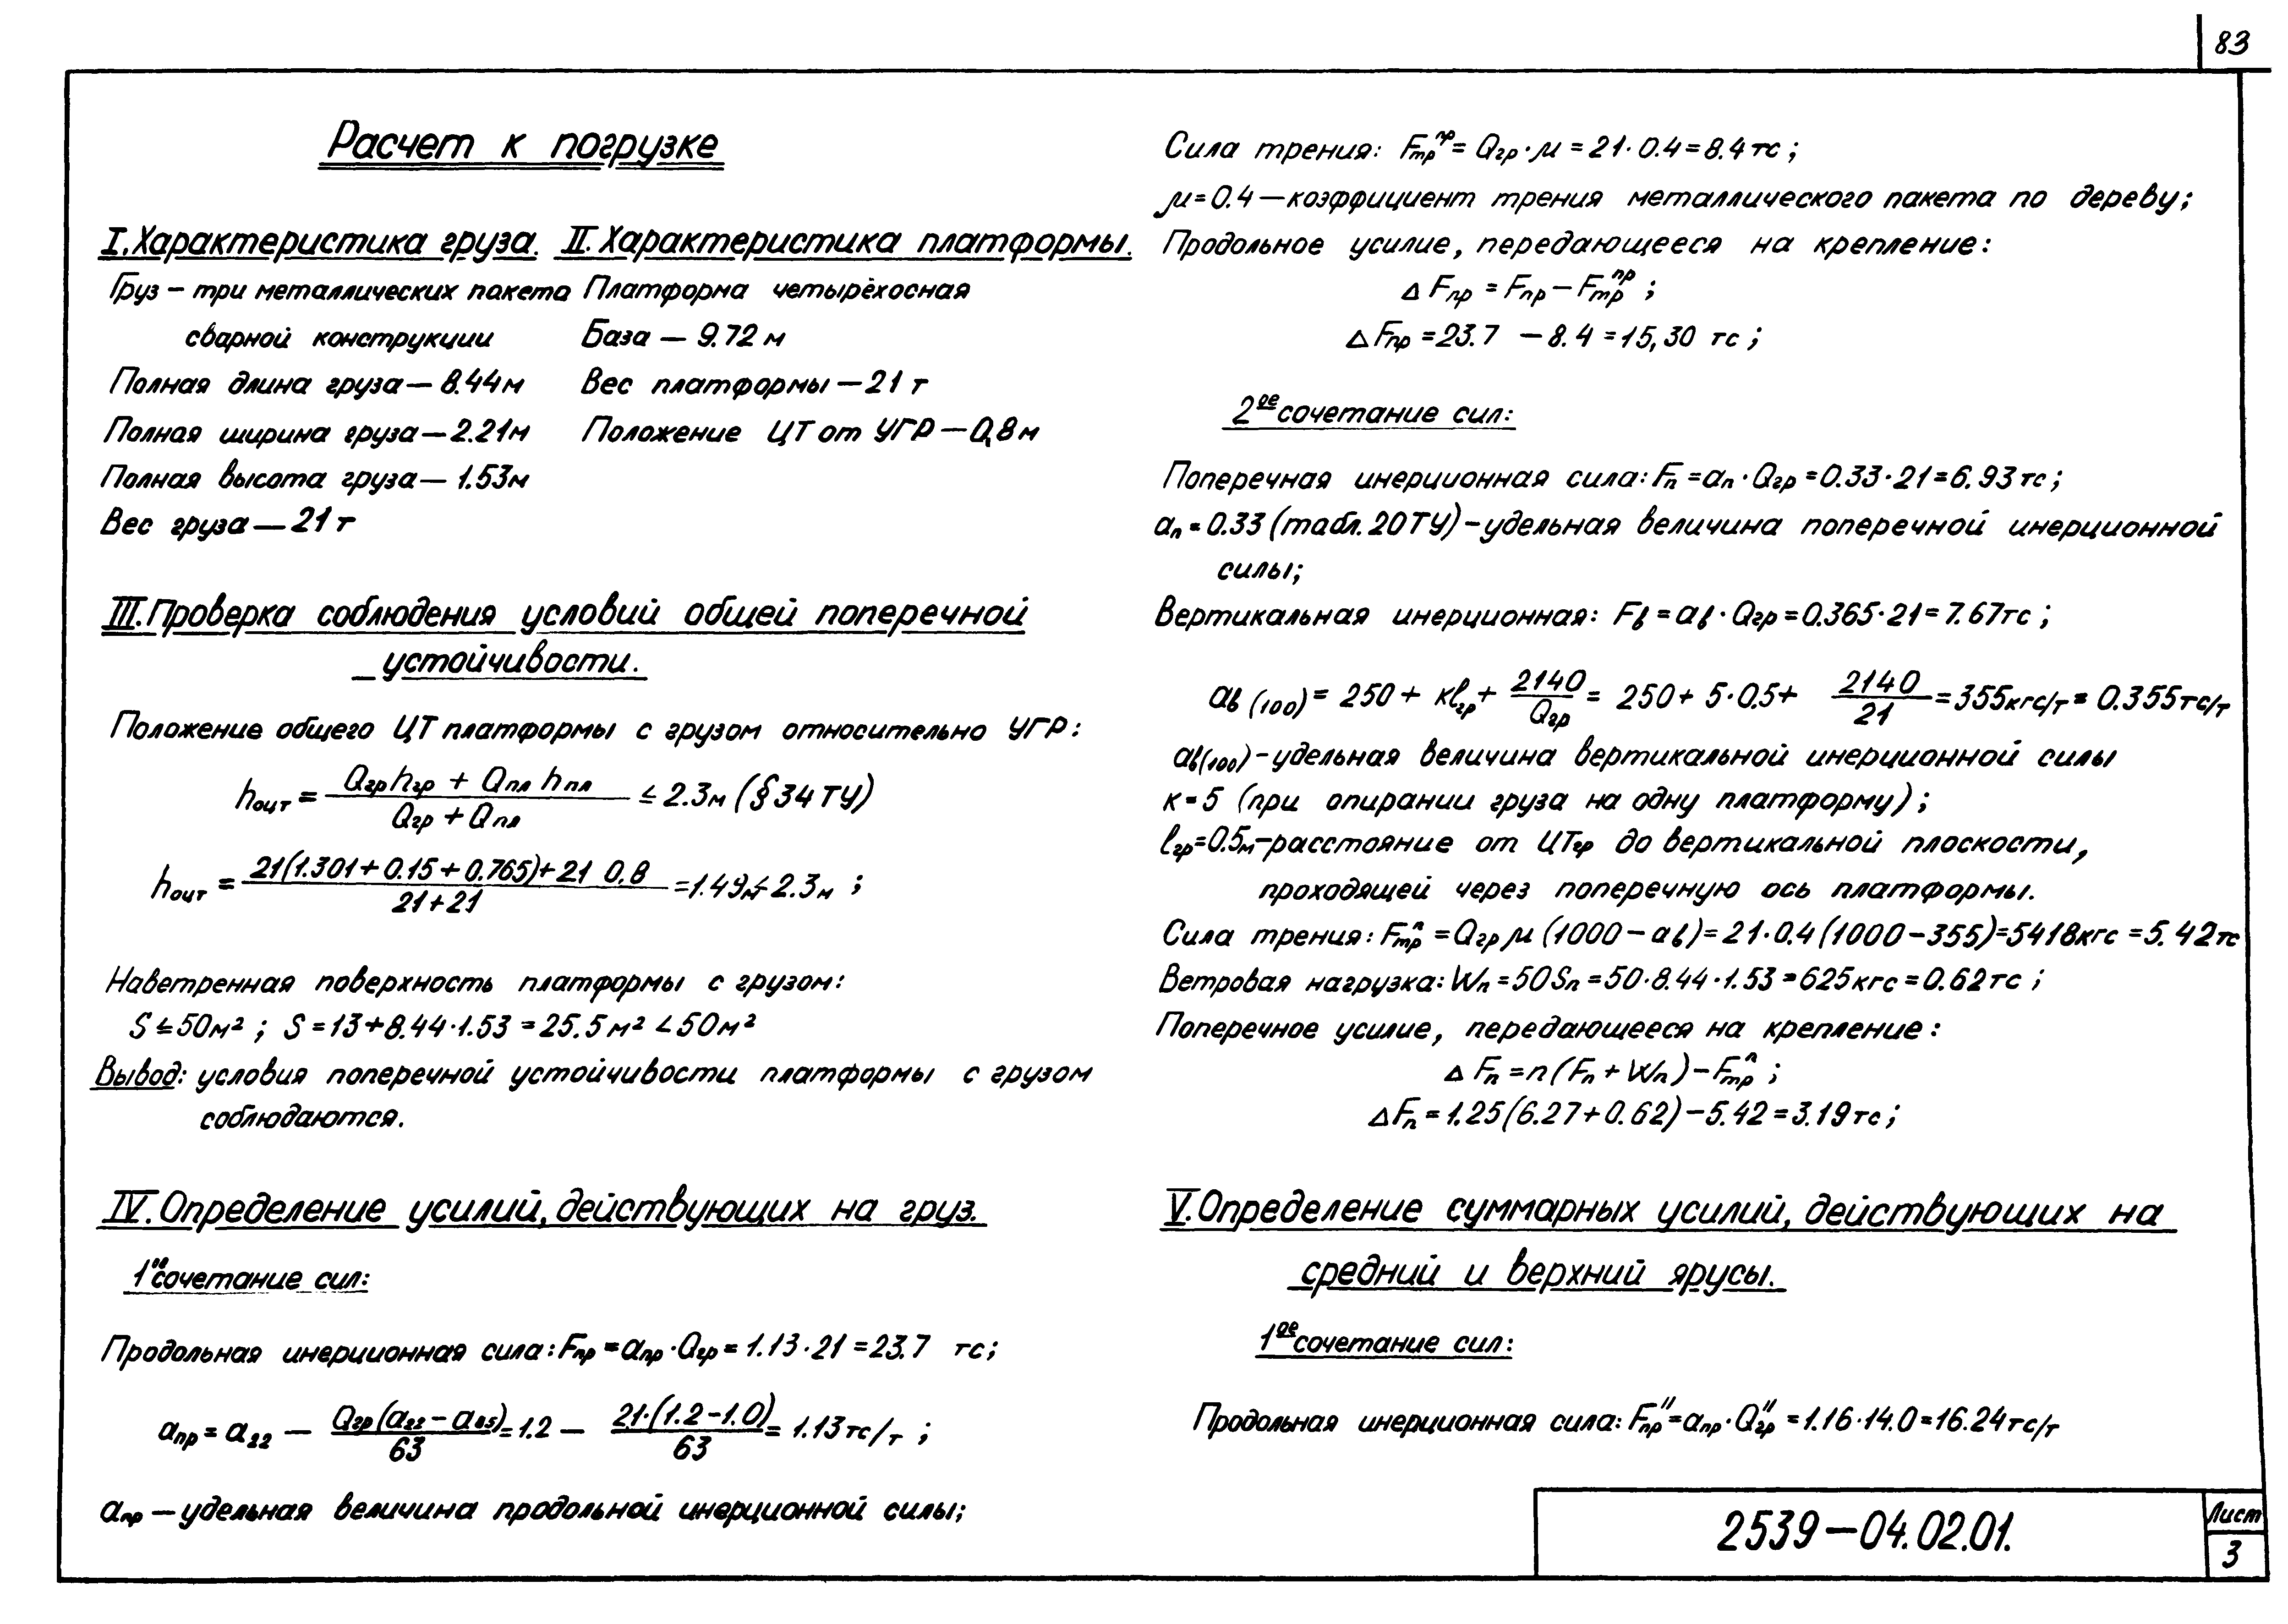 83
Расчет к погрузке
I. Характеристика груза.
Груз – три металлических пакета
сварной конструкции
Полная длина груза — 8.44м
Полная ширина груза — 2.21м
Полная высота груза — 1.53м
Вес груза — 21 т
II. Характеристика платформы.
Платформа четырёхосная
База — 9.72 м
Вес платформы — 21 т
Положение ЦТ от УГР — 0,8 м
III. Проверка соблюдения условий общей поперечной
устойчивости.
Положение общего ЦТ платформы с грузом относительно УГР:
hоцт = (Qгр hгр + Qпл hпл) / (Qгр + Qпл) ≤ 2.3м (§ 34 ТУ)
hоцт = (21(1.301 + 0.15 + 0.765) + 21 0.8) / (21 + 21) = 1.49м ≤ 2.3м ;
Наветренная поверхность платформы с грузом:
S ≤ 50м² ; S = 13 + 8.44 · 1.53 = 25.5 м² < 50м²
Вывод: условия поперечной устойчивости платформы с грузом
соблюдаются.
IV. Определение усилий, действующих на груз.
1ое сочетание сил:
Продольная инерционная сила: Fпр = aпр · Qгр = 1.13 · 21 = 23.7 тс;
aпр = a22 — Qгр (a22 – a85) / 63 = 1.2 — 21·(1.2 – 1.0) / 63 = 1.13 тс/т ;
aпр — удельная величина продольной инерционной силы;
Сила трения: Fтрпр = Qгр · μ = 21 · 0.4 = 8.4 тс ;
μ = 0.4 — коэффициент трения металлического пакета по дереву;
Продольное усилие, передающееся на крепление:
Δ Fпр = Fпр — Fтрпр ;
Δ Fпр = 23.7 — 8.4 = 15,30 тс ;
2ое сочетание сил:
Поперечная инерционная сила: Fп = aп · Qгр = 0.33 · 21 = 6.93 тс ;
aп = 0.33 (табл. 20 ТУ) – удельная величина поперечной инерционной
силы;
Вертикальная инерционная: Fв = aв · Qгр = 0.365 · 21 = 7.67тс ;
aв (100) = 250 + кlгр + 2140 / Qгр = 250 + 5 · 0.5 + 2140 / 21 = 355кгс/т = 0.355тс/т
aв(100) – удельная величина вертикальной инерционной силы
к = 5 (при опирании груза на одну платформу) ;
lгр = 0.5м – расстояние от ЦТгр до вертикальной плоскости,
проходящей через поперечную ось платформы.
Сила трения: Fтрп = Qгр μ (1000 – aв) = 21 · 0.4 (1000 – 355) = 5418кгс = 5.42 тс
Ветровая нагрузка: Wп = 50Sп = 50 · 8.44 · 1.53 = 625кгс = 0.62тс ;
Поперечное усилие, передающееся на крепление :
Δ Fп = n (Fп + Wп) – Fтрп ;
Δ Fп = 1.25 (6.27 + 0.62) – 5.42 = 3.19 тс ;
V. Определение суммарных усилий, действующих на
средний и верхний ярусы.
1ое сочетание сил:
Продольная инерционная сила: Fпр″ = aпр · Qгр″ = 1.16 · 14.0 = 16.24тс/т
2539 — 04.02.01.
Лист
3